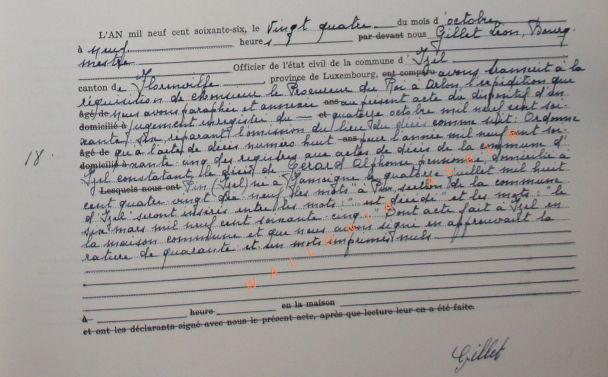 L'AN mil neuf cent soixante-six, le Vingt quatre du mois d'octobre
à neuf heures par devant nous Gillet Léon, Bourg-
mestre Officier de l'état civil de la commune d'Izel
canton de Florenville province de Luxembourg, ont comparu avons transcrit à la
réquisition de Monsieur le Procureur du Roi à Arlon, l'expédition que
âgé de nous avons paraphée et annexée ans au présent acte du dispositif d'un
domicilié à jugement enregistré du et quatorze octobre mil neuf cent soi-
xante six réparant l'omission du lieu du décès comme suit: Ordonne
âgé de qu'à l'acte de décès numéro huit ans pour l'année mil neuf cent soi-
domicilié à xante cinq des registres aux actes de décès de la commune d'
18. Izel constatant le décès de Gérard Alphonse pensionné, domicilié à
Lesquels nous ont Pin (Izel) né à Jamoigne le quatorze juillet mil huit
cent quatre vingt dix neuf les mots à Pin section de la commune
d'Izel" seront insérés entre les mots: "est décédé" et les mots: "le
six mars mil neuf cent soixante cinq". Dont acte fait à Izel en
la maison commune et que nous avons signé en approuvant la
rature de quarante et un mots imprimés nuls
à heure en la maison
et ont les déclarants signé avec nous le présent acte, après que lecture leur en a été faite.
Gillet